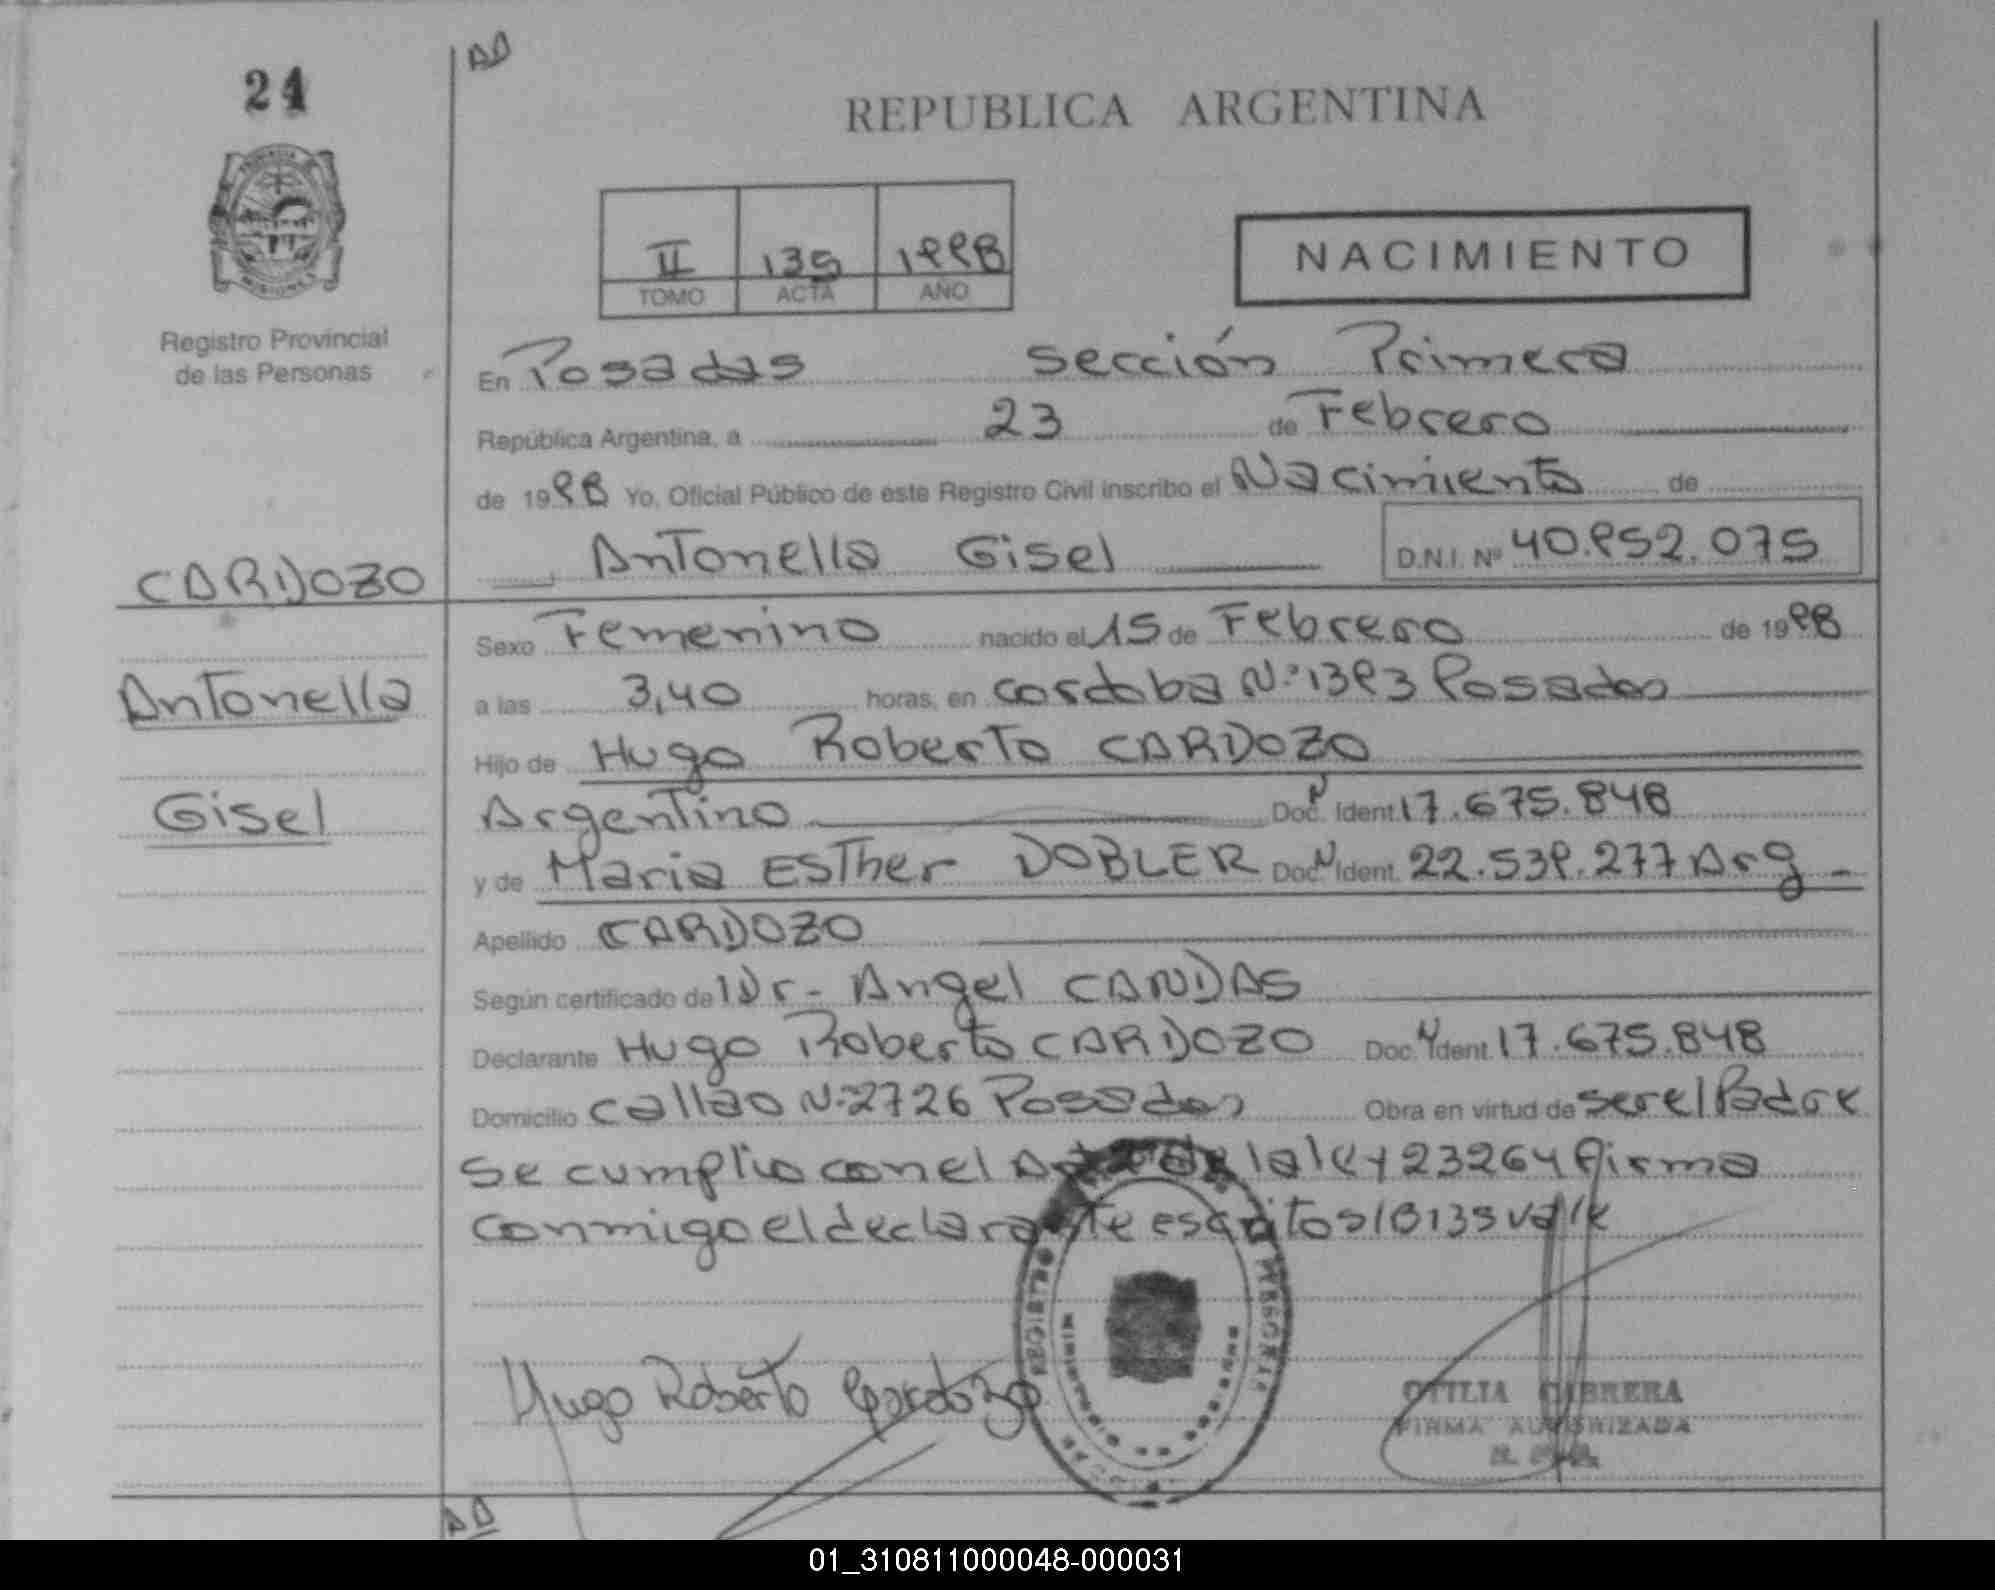 24
AD
REPUBLICA ARGENTINA
II 135 1998
TOMO ACTA AÑO
NACIMIENTO
Registro Provincial
de las Personas
En Posadas Sección Primera
República Argentina, a 23 de Febrero
de 1998 Yo, Oficial Público de este Registro Civil inscribo el Nacimiento de
Antonella Gisel D.N.I. Nº 40.952.075
CARDOZO
Antonella
Gisel
Sexo Femenino nacido el 15 de Febrero de 1998
a las 3,40 horas, en Cordoba Nº 1393 Posadas
Hijo de Hugo Roberto CARDOZO
Argentino Doc. N Ident. 17.675.848
y de Maria Esther DOBLER Doc. N Ident. 22.539.277 Arg
Apellido CARDOZO
Según certificado de Dr. Angel CANDAS
Declarante Hugo Roberto CARDOZO Doc. N Ident. 17.675.848
Domicilio Callao Nº 2726 Posadas Obra en virtud de ser el Padre
Se cumplio con el de la ley 23264 firma
conmigo el declarante escritos 135 vale
Hugo Roberto Cardozo
REGISTRO
OTILIA CABRERA
FIRMA AUTORIZADA
AD
01_310811000048-000031